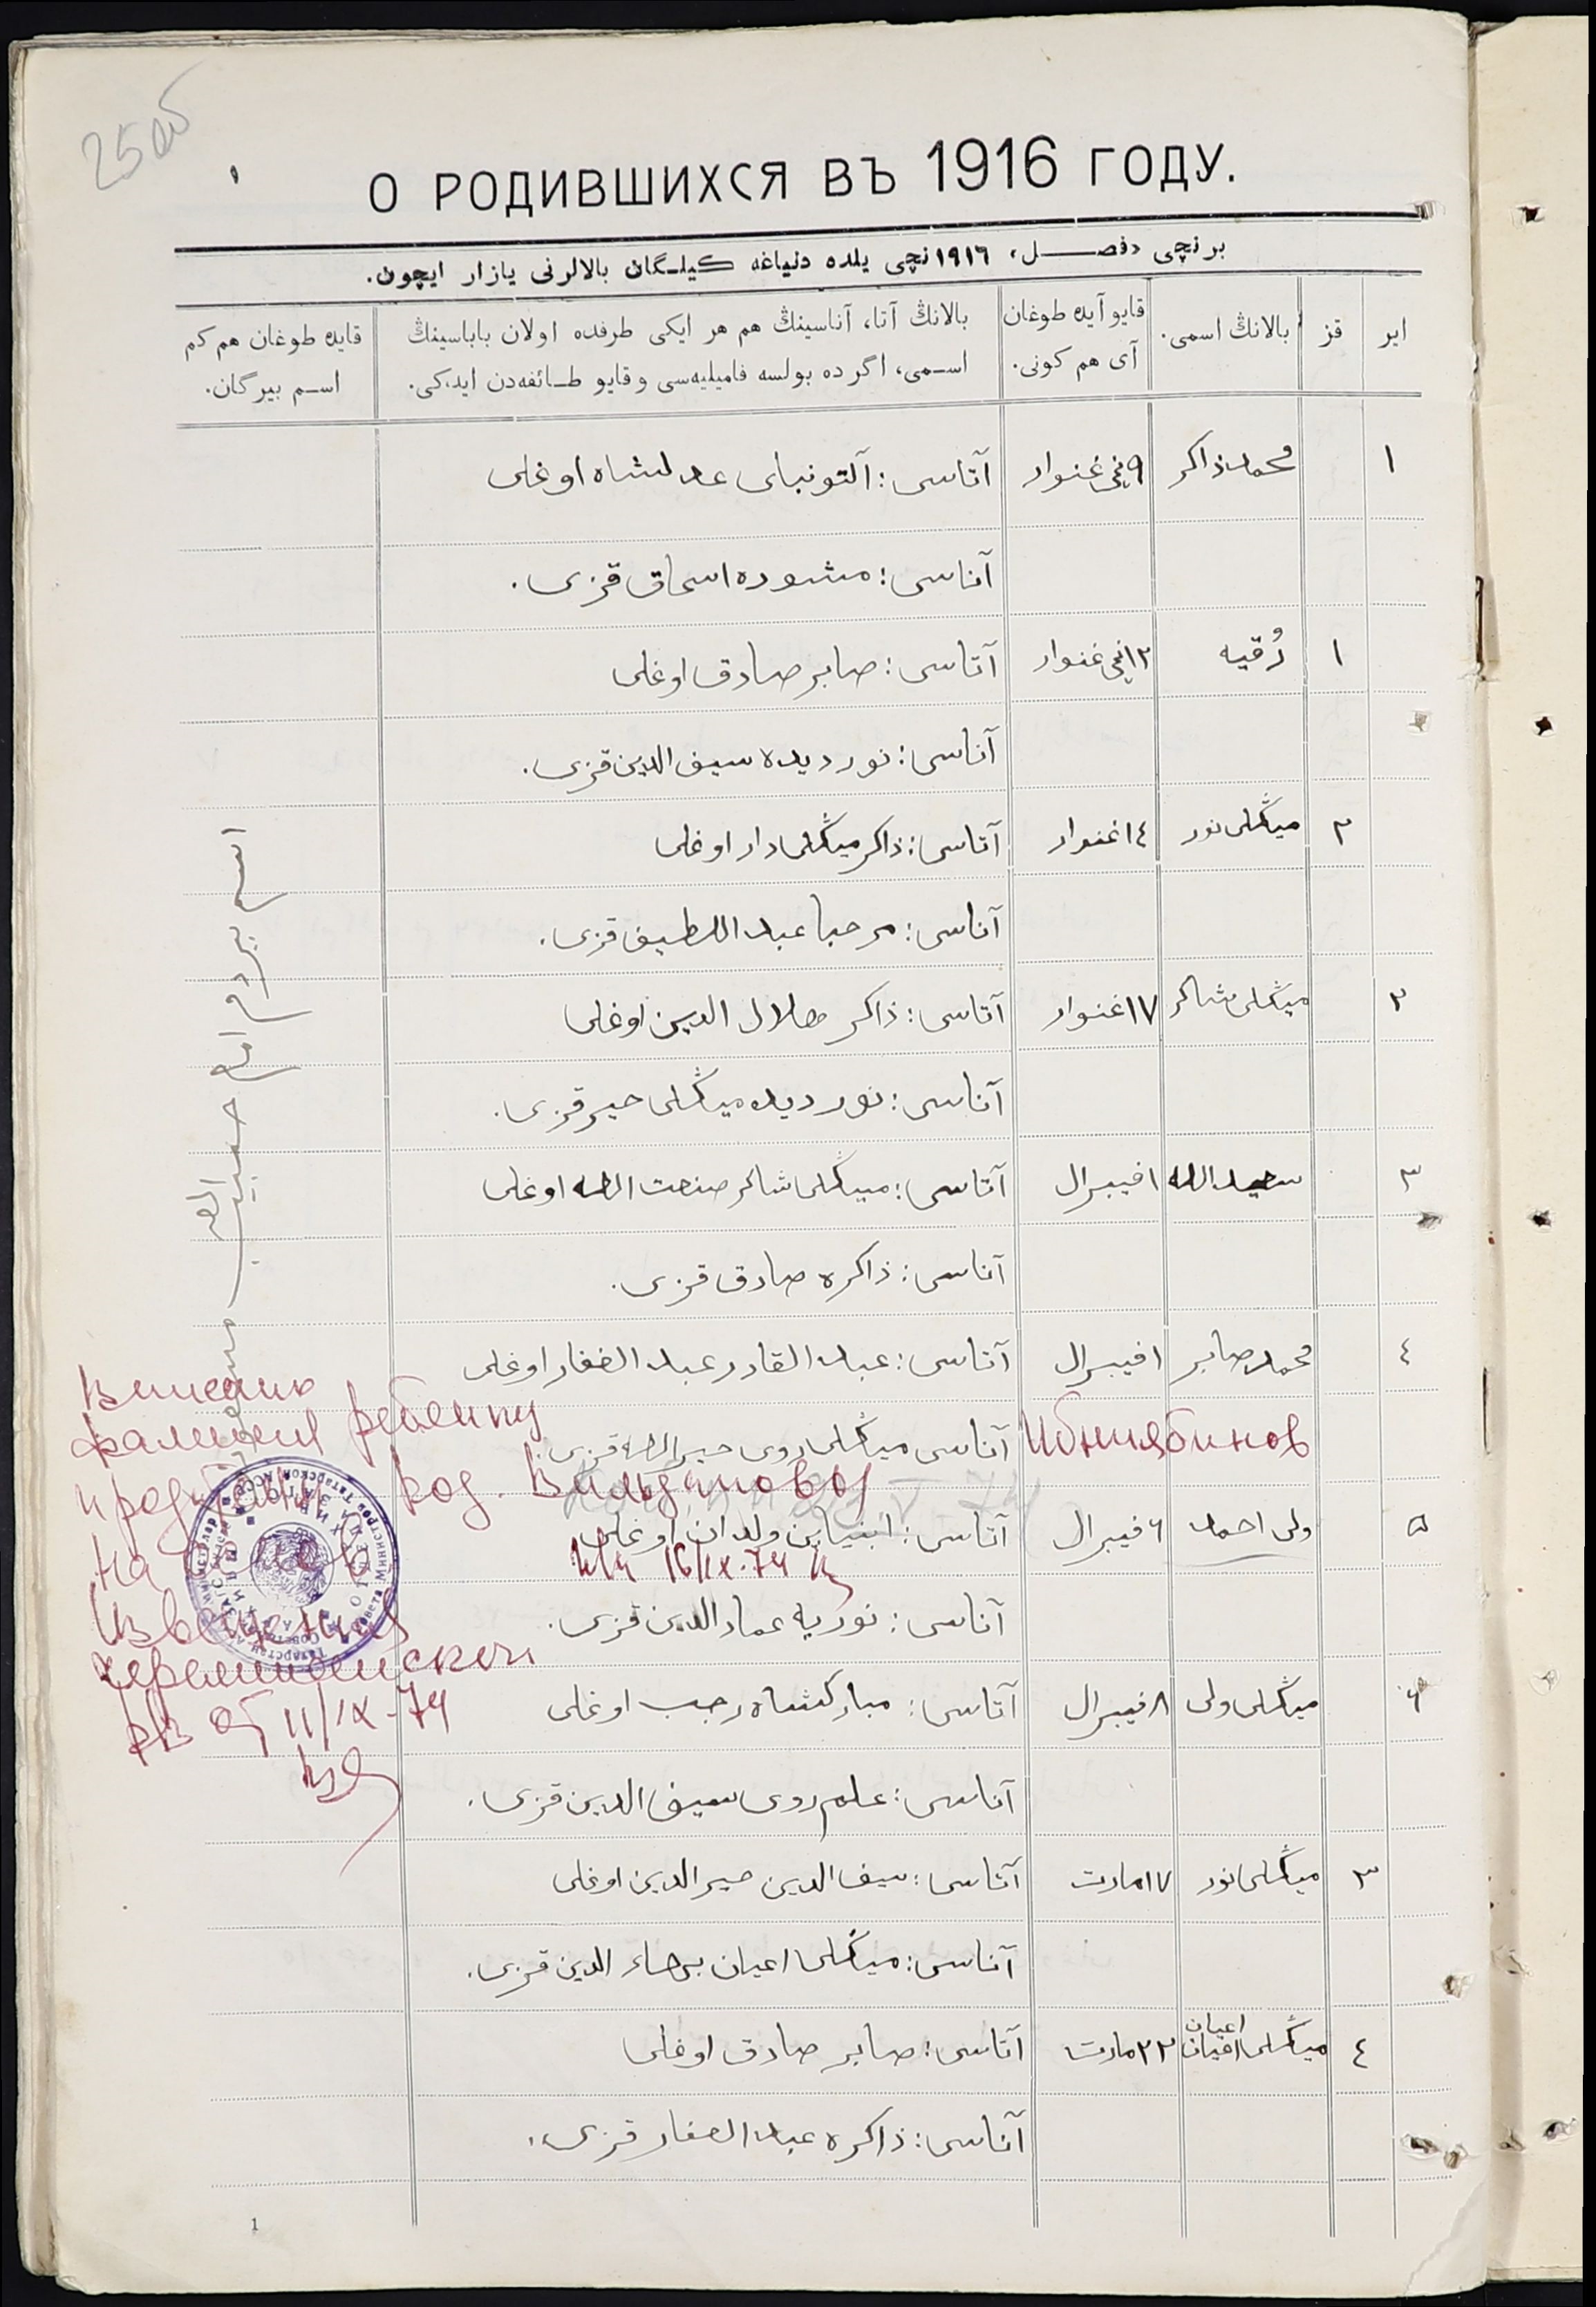 25 об
О РОДИВШИХСЯ ВЪ 1916 ГОДУ.
برنچی «فصل» ١٩١٦ نچی یلده دنیاغه کیلـگان بالالرنی یازار ایچون.
ایر
قز
بالانڭ اسمی.
قایو آیده طوغان
آی هم کونی.
بالانڭ آتا، آناسینڭ هم هر ایکی طرفده اولان باباسینڭ
اسـمی، اگر ده بولسه فامیلیه‌سی و قایو طـائفه‌دن ایدکی.
قایده طوغان هم کم
اسـم بیرگان.
١ محمدذاکر ٩نچی غنوار آتاسی: آلتونبای عدلشاه اوغلی
آناسی: منشوده اسحاق قزی.
١ رُقیه ١٢نچی غنوار آتاسی: صابر صادق اوغلی
آناسی: نوردیده سیف الدین قزی.
٢ میڭلی نور ١٤ غنوار آتاسی: ذاکر میڭلی دار اوغلی
آناسی: مرحبا عبد اللطیف قزی.
٢ میڭلی شاکر ١٧ غنوار آتاسی: ذاکر هلال الدین اوغلی
آناسی: نوردیده میڭلی خیر قزی.
٣ سعیدالله ١ فیبرال آتاسی: میڭلی شاکر صنعت الله اوغلی
آناسی: ذاکره صادق قزی.
٤ محمدصابر ١ فیبرال آتاسی: عبد القادر عبد الغفار اوغلی
آناسی میڭلی روی خیرالله قزی.
Ибниябинов
٥ ولی احمد ٦ فیبرال آتاسی: ابنیابن ولدان اوغلی
16/IX-74
آناسی: نوریه عماد الدین قزی.
٦ میڭلی ولی ٨ فیبرال آتاسی: مبارکشاه رجب اوغلی
آناسی: علم روی سیف الدین قزی.
٣ میڭلی نور ١٧ مارت آتاسی: سیف الدین خیر الدین اوغلی
آناسی: میڭلی اعیان برهان الدین قزی.
٤ میڭلی اعیان ٢٢ مارت آتاسی: صابر صادق اوغلی
آناسی: ذاکره عبد الغفار قزی.
اسم بیردم امام حبیب الله
фамилия ребенку
род. Вильдановой
на
Извещения
от 11/IX-74
1